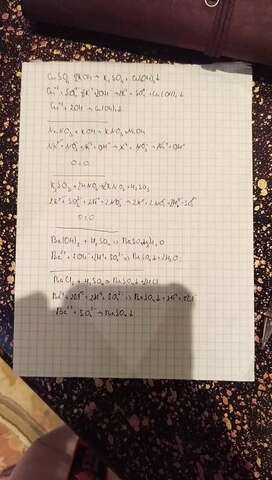 CuSO₄ 2KOH → K₂SO₄ + Cu(OH)₂↓
Cu²⁺ + SO₄²⁻ + 2K⁺ + 2OH⁻ → 2K⁺ + SO₄²⁻ + Cu(OH)₂↓
Cu²⁺ + 2OH⁻ → Cu(OH)₂↓
NaNO₃ + KOH → KNO₃ + NaOH
Na⁺ + NO₃⁻ + K⁺ + OH⁻ → K⁺ + NO₃⁻ + Na⁺ + OH⁻
0 = 0
K₂SO₄ + 2HNO₃ → 2KNO₃ + H₂SO₄
2K⁺ + SO₄²⁻ + 2H⁺ + 2NO₃⁻ → 2K⁺ + 2NO₃⁻ + 2H⁺ + SO₄²⁻
0 = 0
Ba(OH)₂ + H₂SO₄ → BaSO₄↓ H₂O
Ba²⁺ + 2OH⁻ + 2H⁺ + SO₄²⁻ → BaSO₄↓ + 2H₂O
BaCl₂ + H₂SO₄ → BaSO₄↓ + 2HCl
Ba²⁺ + 2Cl⁻ + 2H⁺ + SO₄²⁻ → BaSO₄↓ + 2H⁺ + 2Cl⁻
Ba²⁺ + SO₄²⁻ → BaSO₄↓